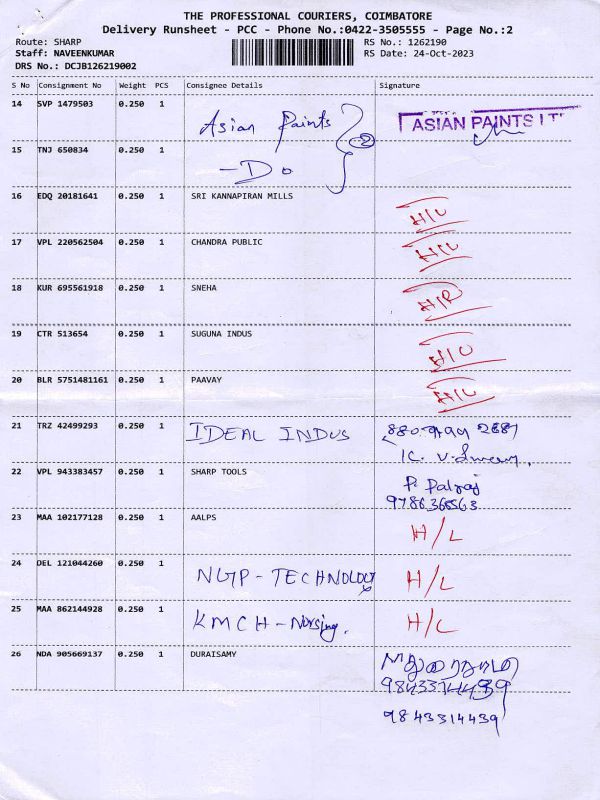 THE PROFESSIONAL COURIERS, COIMBATORE
Delivery Runsheet - PCC - Phone No.:0422-3505555 - Page No.:2
Route: SHARP RS No.: 1262190
Staff: NAVEENKUMAR RS Date: 24-Oct-2023
DRS No.: DCJB126219002
S No Consignment No Weight PCS Consignee Details Signature
14 SVP 1479503 0.250 1 Asian Paints ASIAN PAINTS
15 TNJ 650834 0.250 1 -Do 2
16 EDQ 20181641 0.250 1 SRI KANNAPIRAN MILLS
17 VPL 220562504 0.250 1 CHANDRA PUBLIC
18 KUR 695561918 0.250 1 SNEHA
19 CTR 513654 0.250 1 SUGUNA INDUS
20 BLR 5751481161 0.250 1 PAAVAY
21 TRZ 42499293 0.250 1 IDEAL INDUS
22 VPL 943383457 0.250 1 SHARP TOOLS P. Palraj
23 MAA 102177128 0.250 1 AALPS H/L
24 DEL 121044260 0.250 1 NGP-TECHNOLOGY H/L
25 MAA 862144928 0.250 1 KMCH-Nursing. H/L
26 NDA 905669137 0.250 1 DURAISAMY
9843314439
9843314439